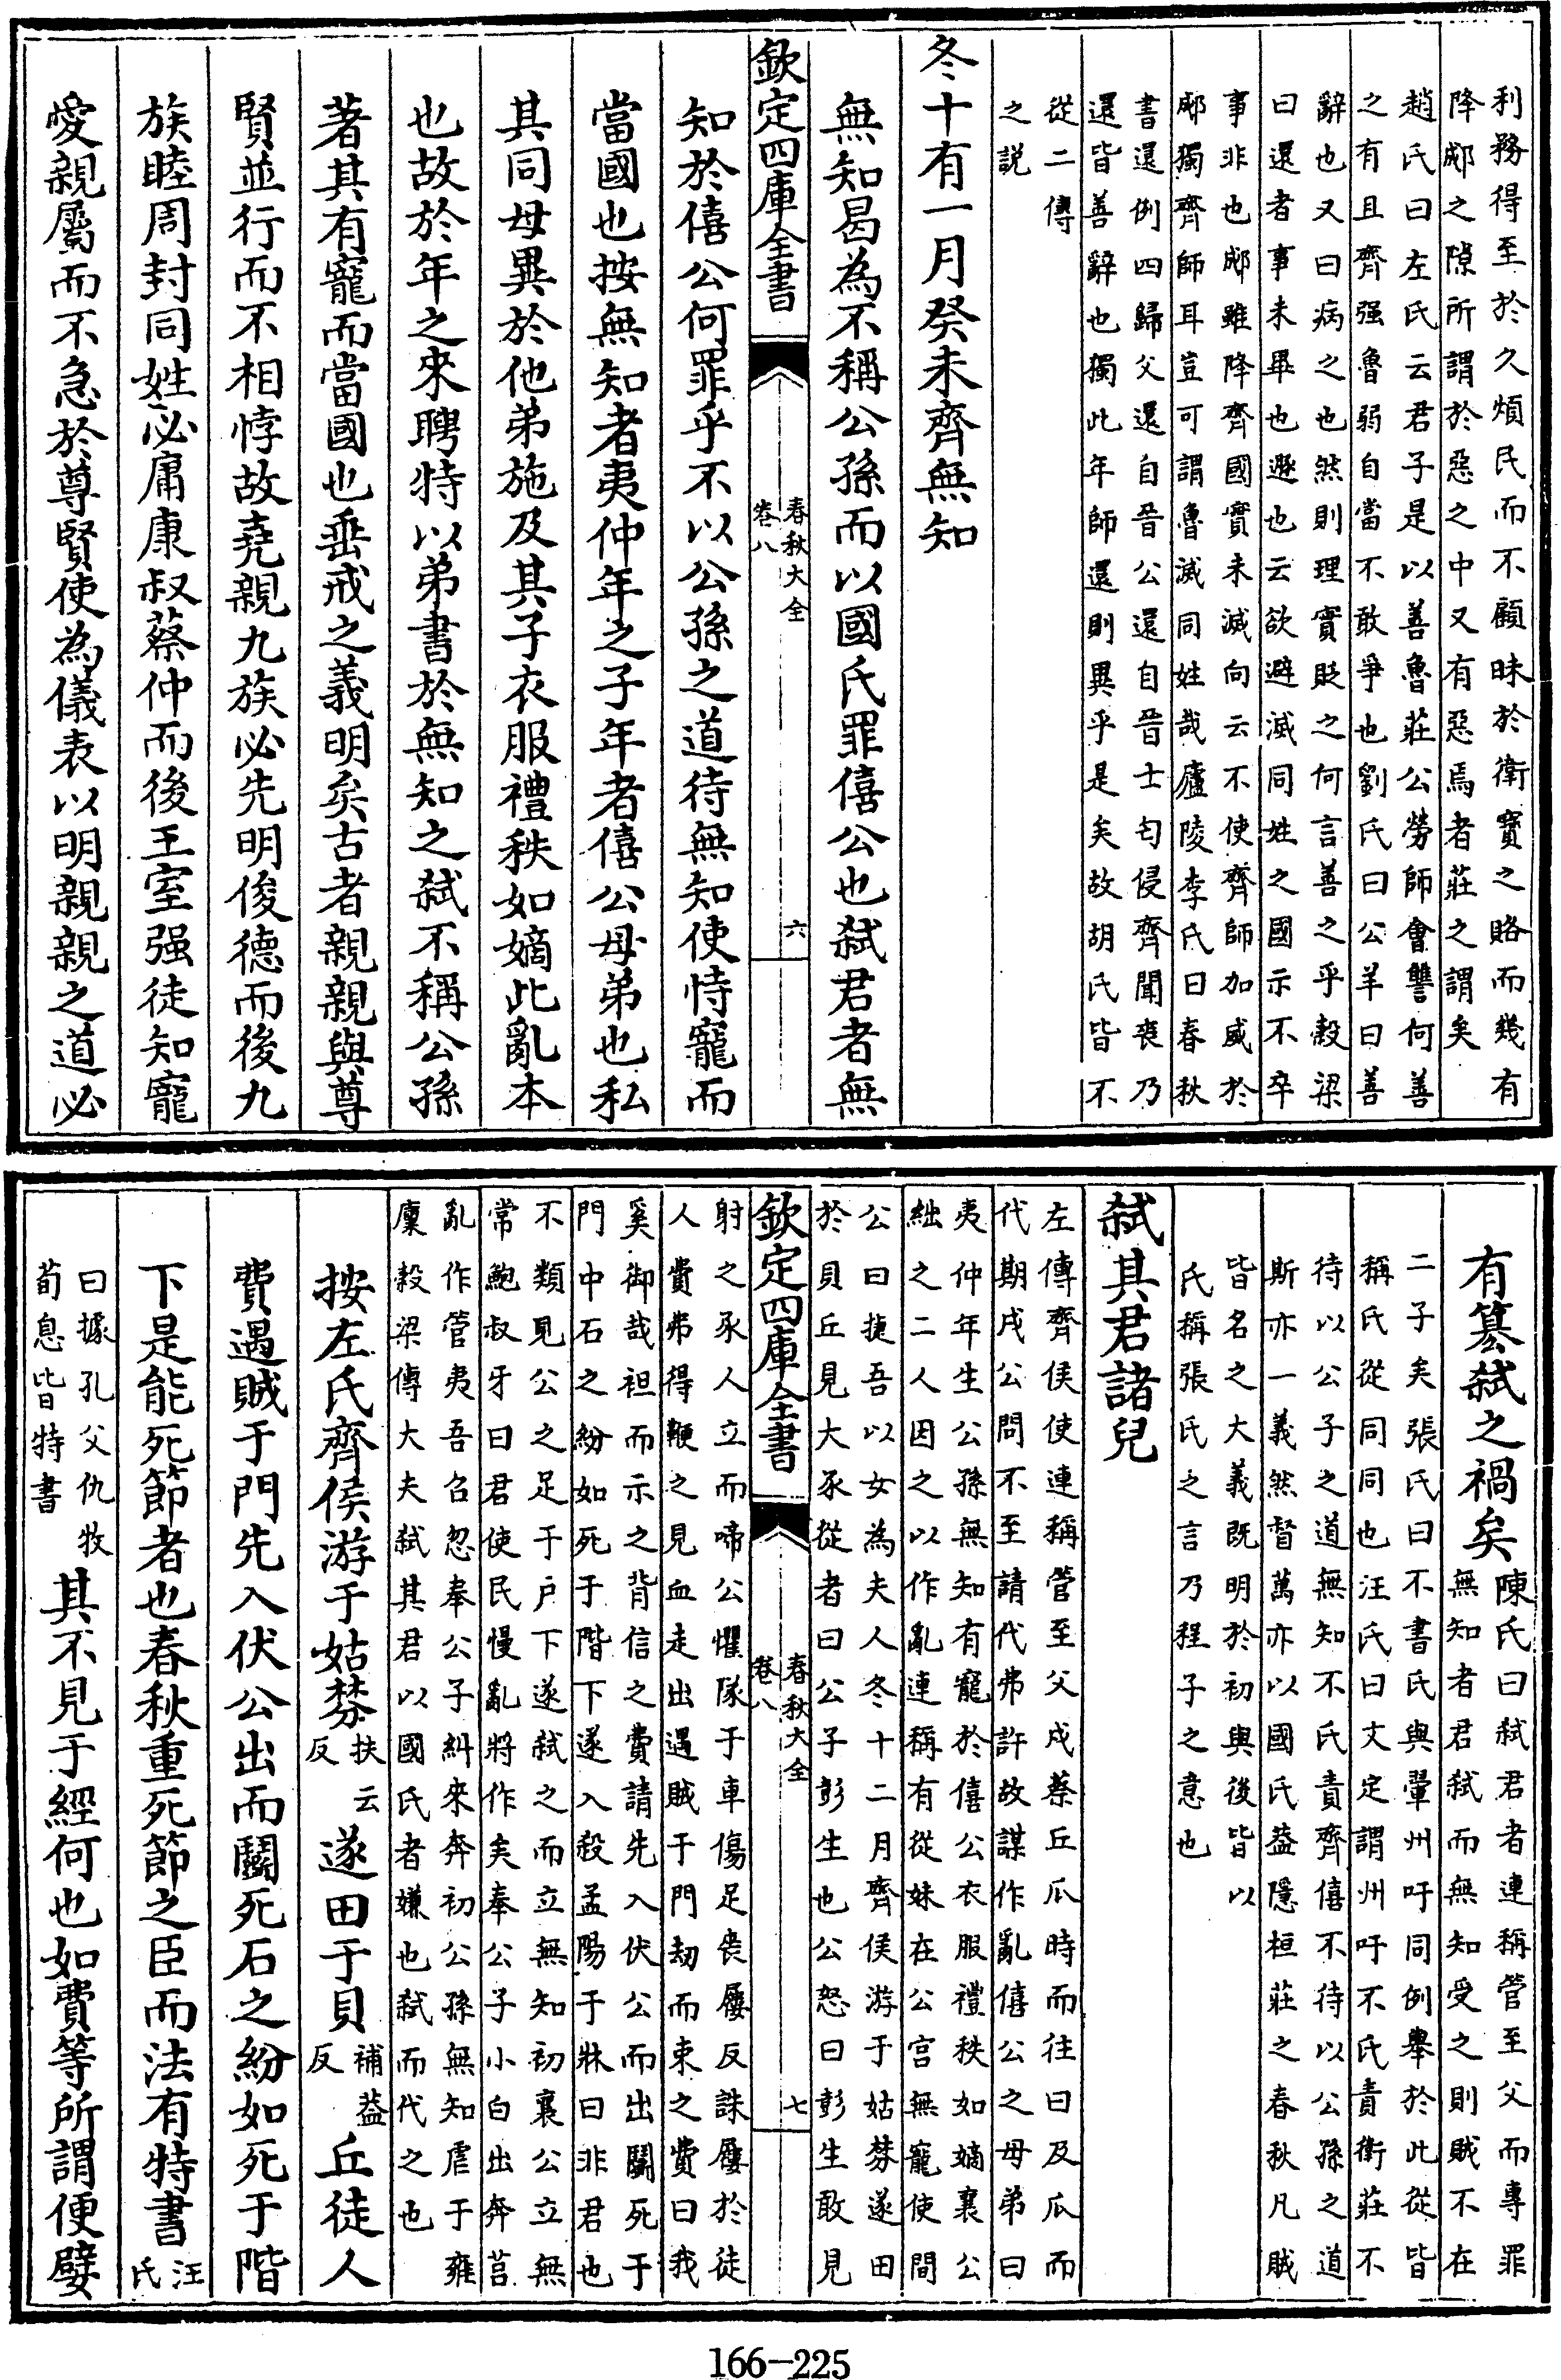 利務得至於久煩民而不顧昧於衛寶之賂而幾有
降郕之隙所謂於惡之中又有惡焉者莊之謂矣
趙氏曰左氏云君子是以善魯莊公勞師會讐何善
之有且齊强魯弱自當不敢爭也劉氏曰公羊曰善
辭也又曰病之也然則理實貶之何言善之乎穀梁
曰還者事未畢也遯也云欲避滅同姓之國示不卒
事非也郕雖降齊國實未滅向云不使齊師加威於
郕獨齊師耳豈可謂魯滅同姓哉廬陵李氏曰春秋
書還例四歸父還自晉公還自晉士匄侵齊聞喪乃
還皆善辭也獨此年師還則異乎是矣故胡氏皆不
從二傳
之説
冬十有一月癸未齊無知
無知曷為不稱公孫而以國氏罪僖公也弑君者無
欽定四庫全書
春秋大全
卷八
六
知於僖公何罪乎不以公孫之道待無知使恃寵而
當國也按無知者夷仲年之子年者僖公母弟也私
其同母異於他弟施及其子衣服禮秩如嫡此亂本
也故於年之來聘特以弟書於無知之弑不稱公孫
著其有寵而當國也垂戒之義明矣古者親親與尊
賢並行而不相悖故堯親九族必先明俊德而後九
族睦周封同姓必庸康叔蔡仲而後王室强徒知寵
愛親屬而不急於尊賢使為儀表以明親親之道必
有簒弑之禍矣
陳氏曰弑君者連稱管至父而專罪
無知者君弑而無知受之則賊不在
二子矣張氏曰不書氏與翬州吁同例舉於此從皆
稱氏從同同也汪氏曰文定謂州吁不氏責衛莊不
待以公子之道無知不氏責齊僖不待以公孫之道
斯亦一義然督萬亦以國氏葢隱桓莊之春秋凡賊
皆名之大義既明於初與後皆以
氏稱張氏之言乃程子之意也
弑其君諸兒
左傳齊侯使連稱管至父戍葵丘瓜時而往曰及瓜而
代期戍公問不至請代弗許故謀作亂僖公之母弟曰
夷仲年生公孫無知有寵於僖公衣服禮秩如嫡襄公
絀之二人因之以作亂連稱有從妹在公宫無寵使間
公曰捷吾以女為夫人冬十二月齊侯游于姑棼遂田
於貝丘見大豕從者曰公子彭生也公怒曰彭生敢見
欽定四庫全書
春秋大全
卷八
七
射之豕人立而啼公懼隊于車傷足喪屨反誅屨於徒
人費弗得鞭之見血走出遇賊于門刼而束之費曰我
奚御哉袒而示之背信之費請先入伏公而出鬬死于
門中石之紛如死于階下遂入殺孟陽于牀曰非君也
不類見公之足于户下遂弑之而立無知初襄公立無
常鮑叔牙曰君使民慢亂將作矣奉公子小白出奔莒
亂作管夷吾召忽奉公子糾來奔初公孫無知虐于雍
廩穀梁傳大夫弑其君以國氏者嫌也弑而代之也
按左氏齊侯游于姑棼扶云反遂田于貝補葢反丘徒人
費遇賊于門先入伏公出而鬬死石之紛如死于階
下是能死節者也春秋重死節之臣而法有特書汪氏
曰據孔父仇牧
荀息皆特書
其不見于經何也如費等所謂便嬖
166-225